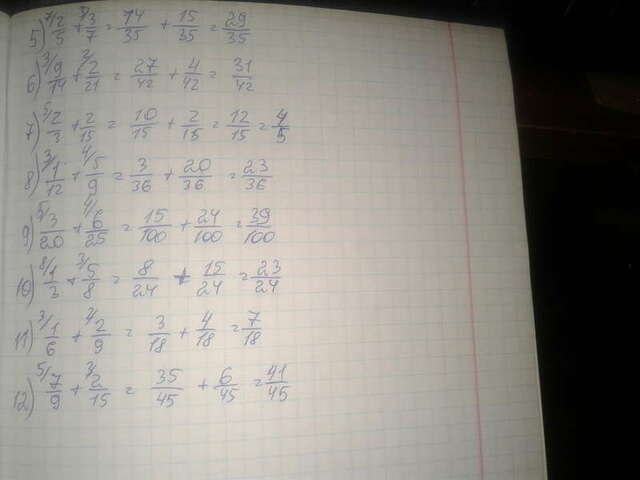 5) 7/ 2/5 + 5/ 3/7 = 14/35 + 15/35 = 29/35
6) 3/ 9/14 + 2/ 2/21 = 27/42 + 4/42 = 31/42
7) 5/ 2/3 + 2/15 = 10/15 + 2/15 = 12/15 = 4/5
8) 3/ 1/12 + 4/ 5/9 = 3/36 + 20/36 = 23/36
9) 5/ 3/20 + 4/ 6/25 = 15/100 + 24/100 = 39/100
10) 8/ 1/3 + 3/ 5/8 = 8/24 + 15/24 = 23/24
11) 3/ 1/6 + 2/ 2/9 = 3/18 + 4/18 = 7/18
12) 5/ 7/9 + 3/ 2/15 = 35/45 + 6/45 = 41/45